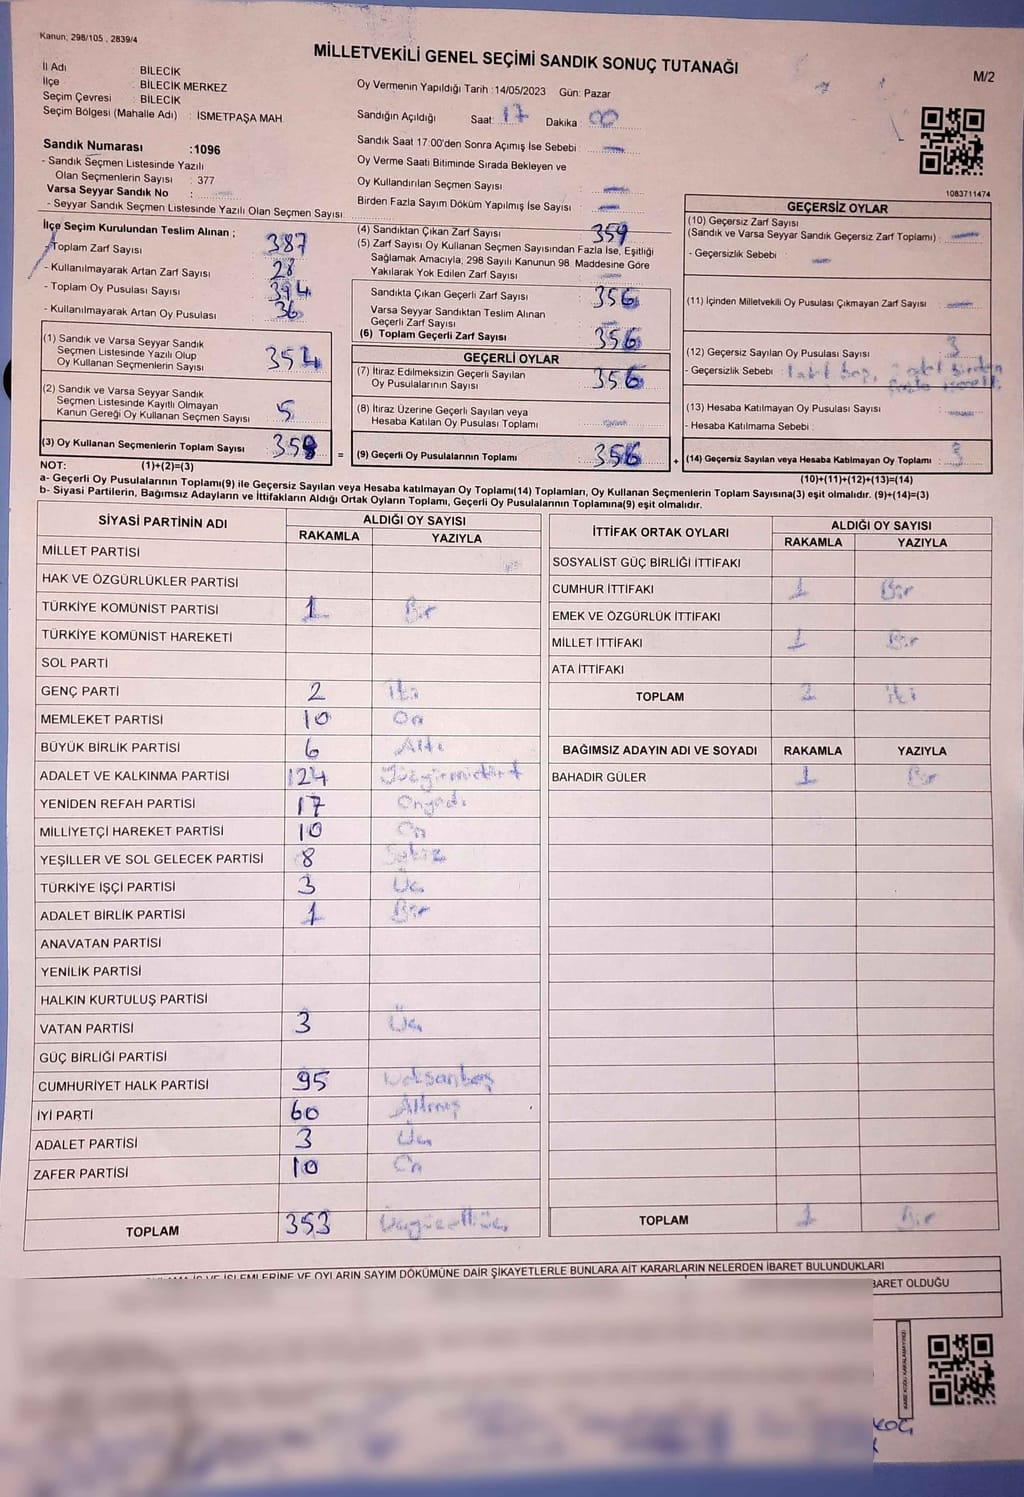 Kanun; 298/105 , 2839/4
MİLLETVEKİLİ GENEL SEÇİMİ SANDIK SONUÇ TUTANAĞI
M/2
İl Adı : BİLECİK
İlçe : BİLECİK MERKEZ
Seçim Çevresi : BİLECİK
Seçim Bölgesi (Mahalle Adı) : İSMETPAŞA MAH.
Oy Vermenin Yapıldığı Tarih :14/05/2023 Gün: Pazar
Sandığın Açıldığı Saat: 17 Dakika : 00
Sandık Numarası :1096
- Sandık Seçmen Listesinde Yazılı
Olan Seçmenlerin Sayısı : 377
Varsa Seyyar Sandık No : —
- Seyyar Sandık Seçmen Listesinde Yazılı Olan Seçmen Sayısı:
Sandık Saat 17:00'den Sonra Açımış İse Sebebi : —
Oy Verme Saati Bitiminde Sırada Bekleyen ve
Oy Kullandırılan Seçmen Sayısı : —
Birden Fazla Sayım Döküm Yapılmış İse Sayısı : —
1083711474
İlçe Seçim Kurulundan Teslim Alınan ;
- Toplam Zarf Sayısı : 387
- Kullanılmayarak Artan Zarf Sayısı : 28
- Toplam Oy Pusulası Sayısı : 394
- Kullanılmayarak Artan Oy Pusulası : 36
(1) Sandık ve Varsa Seyyar Sandık
Seçmen Listesinde Yazılı Olup
Oy Kullanan Seçmenlerin Sayısı : 354
(2) Sandık ve Varsa Seyyar Sandık
Seçmen Listesinde Kayıtlı Olmayan
Kanun Gereği Oy Kullanan Seçmen Sayısı : 5
(3) Oy Kullanan Seçmenlerin Toplam Sayısı : 359
(4) Sandıktan Çıkan Zarf Sayısı : 359
(5) Zarf Sayısı Oy Kullanan Seçmen Sayısından Fazla İse, Eşitliği
Sağlamak Amacıyla, 298 Sayılı Kanunun 98. Maddesine Göre
Yakılarak Yok Edilen Zarf Sayısı : —
Sandıkta Çıkan Geçerli Zarf Sayısı : 356
Varsa Seyyar Sandıktan Teslim Alınan
Geçerli Zarf Sayısı : —
(6) Toplam Geçerli Zarf Sayısı : 356
GEÇERLİ OYLAR
(7) İtiraz Edilmeksizin Geçerli Sayılan
Oy Pusulalarının Sayısı : 356
(8) İtiraz Üzerine Geçerli Sayılan veya
Hesaba Katılan Oy Pusulası Toplamı : —
= (9) Geçerli Oy Pusulalarının Toplamı : 356
GEÇERSİZ OYLAR
(10) Geçersiz Zarf Sayısı
(Sandık ve Varsa Seyyar Sandık Geçersiz Zarf Toplamı) : —
- Geçersizlik Sebebi : —
(11) İçinden Milletvekili Oy Pusulası Çıkmayan Zarf Sayısı : —
(12) Geçersiz Sayılan Oy Pusulası Sayısı : 3
- Geçersizlik Sebebi : 1 adet boş, 2 adet birden
fazla
(13) Hesaba Katılmayan Oy Pusulası Sayısı : —
- Hesaba Katılmama Sebebi :
+ (14) Geçersiz Sayılan veya Hesaba Katılmayan Oy Toplamı : 3
NOT: (1)+(2)=(3)
(10)+(11)+(12)+(13)=(14)
a- Geçerli Oy Pusulalarının Toplamı(9) ile Geçersiz Sayılan veya Hesaba katılmayan Oy Toplamı(14) Toplamları, Oy Kullanan Seçmenlerin Toplam Sayısına(3) eşit olmalıdır. (9)+(14)=(3)
b- Siyasi Partilerin, Bağımsız Adayların ve İttifakların Aldığı Ortak Oyların Toplamı, Geçerli Oy Pusulalarının Toplamına(9) eşit olmalıdır.
SİYASİ PARTİNİN ADI ALDIĞI OY SAYISI
RAKAMLA YAZIYLA
MİLLET PARTİSİ
HAK VE ÖZGÜRLÜKLER PARTİSİ
TÜRKİYE KOMÜNİST PARTİSİ 1 Bir
TÜRKİYE KOMÜNİST HAREKETİ
SOL PARTİ
GENÇ PARTİ 2 İki
MEMLEKET PARTİSİ 10 On
BÜYÜK BİRLİK PARTİSİ 6 Altı
ADALET VE KALKINMA PARTİSİ 124 Yüzyirmidört
YENİDEN REFAH PARTİSİ 17 Onyedi
MİLLİYETÇİ HAREKET PARTİSİ 10 On
YEŞİLLER VE SOL GELECEK PARTİSİ 8 Sekiz
TÜRKİYE İŞÇİ PARTİSİ 3 Üç
ADALET BİRLİK PARTİSİ 1 Bir
ANAVATAN PARTİSİ
YENİLİK PARTİSİ
HALKIN KURTULUŞ PARTİSİ
VATAN PARTİSİ 3 Üç
GÜÇ BİRLİĞİ PARTİSİ
CUMHURİYET HALK PARTİSİ 95 Doksanbeş
İYİ PARTİ 60 Altmış
ADALET PARTİSİ 3 Üç
ZAFER PARTİSİ 10 On
TOPLAM 353 Üçyüzelliüç
İTTİFAK ORTAK OYLARI ALDIĞI OY SAYISI
RAKAMLA YAZIYLA
SOSYALİST GÜÇ BİRLİĞİ İTTİFAKI
CUMHUR İTTİFAKI 1 Bir
EMEK VE ÖZGÜRLÜK İTTİFAKI
MİLLET İTTİFAKI 1 Bir
ATA İTTİFAKI
TOPLAM 2 İki
BAĞIMSIZ ADAYIN ADI VE SOYADI RAKAMLA YAZIYLA
BAHADIR GÜLER 1 Bir
TOPLAM 1 Bir
İŞLEMLERİNE VE OYLARIN SAYIM DÖKÜMÜNE DAİR ŞİKAYETLERLE BUNLARA AİT KARARLARIN NELERDEN İBARET BULUNDUKLARI
BARET OLDUĞU